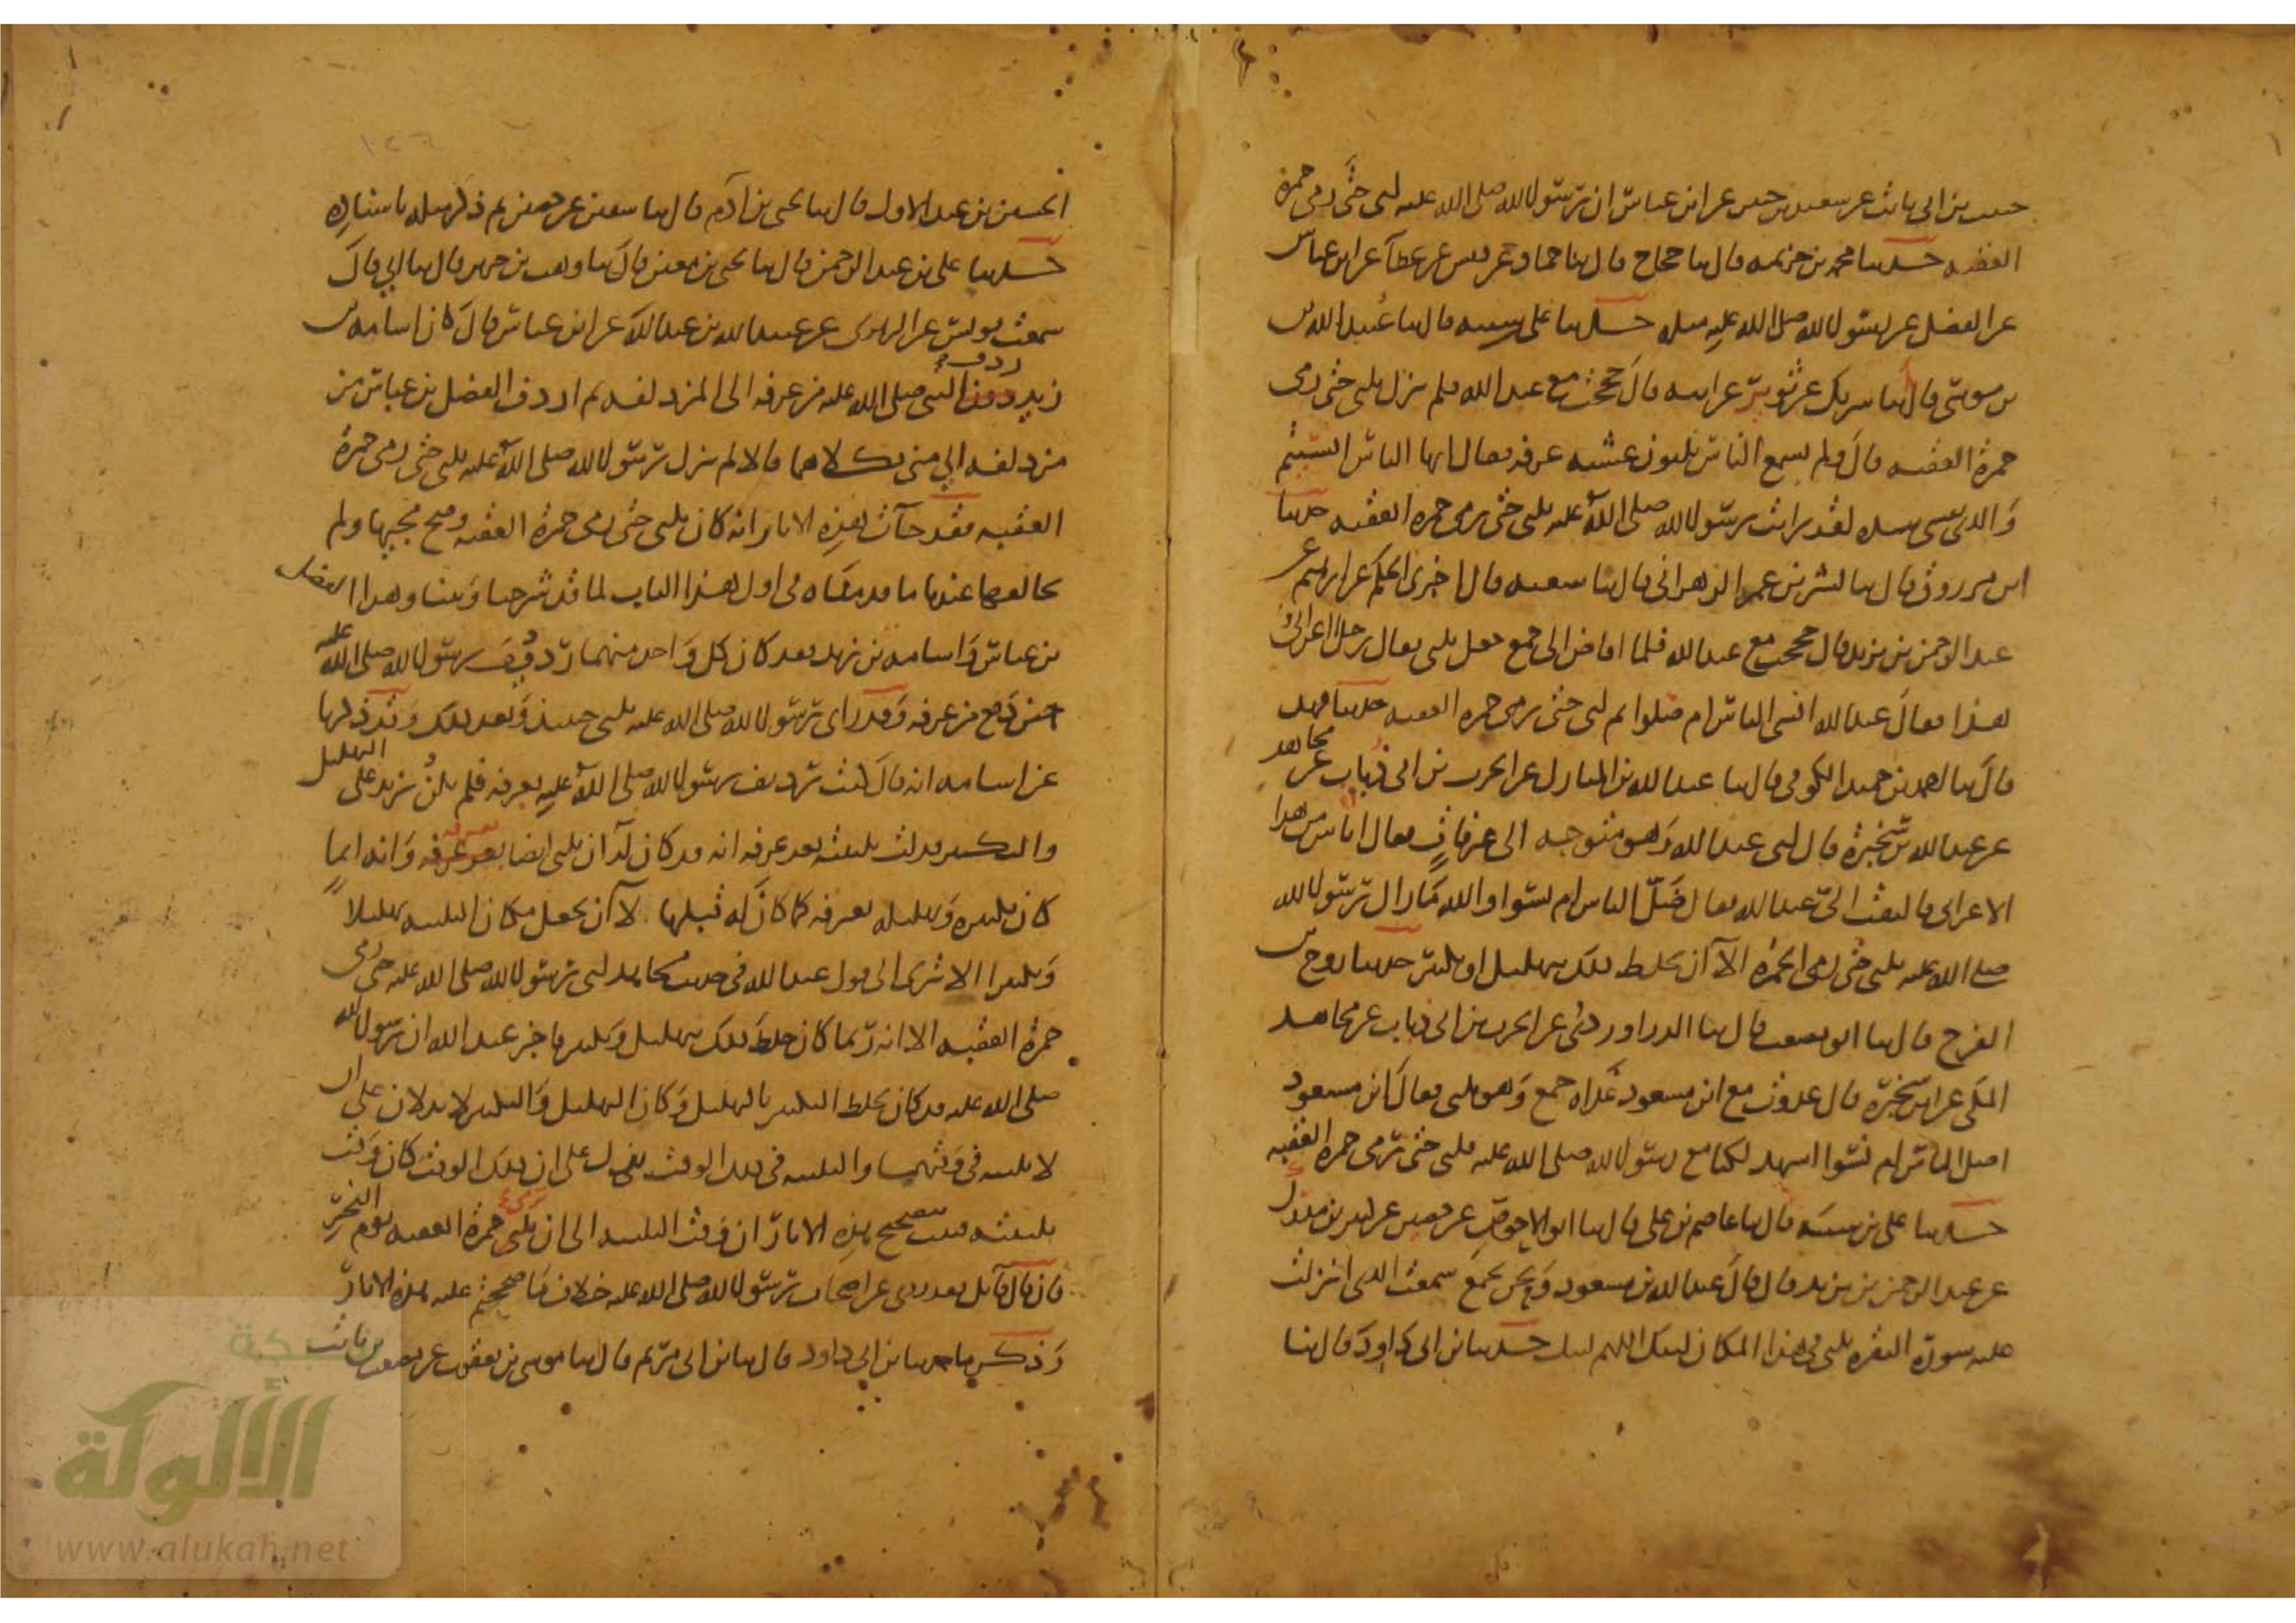 حبيب بن ابي ثابت عن سعيد بن جبير عن ابن عباس ان رسول الله صلى الله عليه لبى حتى رمى جمرة
العقبه حدثنا محمد بن خزيمه قال ثنا حجاج قال ثنا حماد عن قيس عن عطآ عن ابن عباس
عن الفضل عن رسول الله صلى الله عليه مثله حدثنا علي بن شيبه قال ثنا عبيد الله بن
بن موسى قال ثنا شريك عن ثوير عن ابيه قال حججت مع عبد الله فلم يزل يلبي حتى رمى
جمرة العقبه قال ولم يسمع الناس يلبون عشيه عرفه فقال ايها الناس انسيتم
والذي نفسي بيده لقد رايت رسول الله صلى الله عليه يلبي حتى رمى جمره العقبه حدثنا
ابن مرزوق قال ثنا بشر بن عمر الزهراني قال ثنا شعبه قال اخبرني الحكم عن ابرهيم عن
عبد الرحمن بن يزيد قال حججت مع عبد الله فلما افاض الى جمع جعل يلبي فقال رجل اعرابي
هذا فقال عبد الله انسي الناس ام ضلوا ثم لبى حتى رمى جمره العقبه حدثنا فهد
قال ثنا احمد بن حميد الكوفي قال ثنا عبد الله بن المبارك عن الحرث بن ابي ذباب عن مجاهد
عن عبد الله بن سخبرة قال لبى عبد الله وهو متوجه الى عرفات فقال اناس من هذا
الاعرابي فالتفت الي عبد الله فقال اضل الناس ام نسوا والله ما زال رسول الله
صلى الله عليه يلبي حتى رمى الجمره الا ان يخلط ذلك بتهليل او بتكبير حدثنا روح بن
الفرج قال ثنا ابو مصعب قال ثنا الدراوردي عن الحرث بن ابي ذباب عن مجاهد
المكي عن ابن سخبرة قال غدوت مع ابن مسعود غداه جمع وهو يلبي فقال ابن مسعود
اضل الناس ام نسوا اشهد لكنا مع رسول الله صلى الله عليه فلبى حتى رمى جمره العقبه
حدثنا علي بن شيبه قال ثنا عاصم بن علي قال ثنا ابو الاحوص عن حصين عن كثير بن مدرك
عن عبد الرحمن بن يزيد قال قال عبد الله بن مسعود ونحن بجمع سمعت الذي انزلت
عليه سورة البقره يلبي في هذا المكان لبيك اللهم لبيك حدثنا بن ابي داود قال ثنا
الحسين بن عبد الاول قال ثنا يحيى بن آدم قال ثنا سفين عن حصين ثم ذكر مثله باسناده
حدثنا علي بن عبد الرحمن قال ثنا يحيى بن معين قال ثنا وهب بن جرير قال ثنا ابي قال
سمعت يونس عن الزهري عن عبيد الله بن عبد الله عن ابن عباس قال كان اسامه بن
زيد ردف النبي صلى الله عليه من عرفه الى المزدلفه ثم اردف الفضل بن عباس من
مزدلفه الى منى فكلاهما قالا لم يزل رسول الله صلى الله عليه يلبي حتى رمى جمرة
العقبه فقد جآت هذه الاثار انه كان يلبي حتى رمى جمرة العقبه وصح مجيها ولم
يخالفها عندنا ما قدمناه في اول هذا الباب لما قد شرحنا وبينا وهذا الفضل
بن عباس واسامه بن زيد فقد كان كل واحد منهما رديف رسول الله صلى الله عليه
حين دفع من عرفه وقد راى رسول الله صلى الله عليه يلبي حينئذ وبعد ذلك وقد ذكرنا
عن اسامه انه قال كنت رديف رسول الله صلى الله عليه بعرفه فلم يكن يزيد على التهليل
والتكبير فدلت تلبيته بعد عرفه انه قد كان له ان يلبي ايضا بعرفه وانه انما
كان تكبيره وتهليله بعرفه كما كان له قبلها لا ان يجعل مكان التلبيه تهليلا
وتكبيرا الا ترى الى قول عبد الله في حديث مجاهد لبى رسول الله صلى الله عليه حتى رمى
جمرة العقبه الا انه ربما كان خلط ذلك بتهليل وتكبير فاخبر عبد الله ان رسول الله
صلى الله عليه قد كان يخلط التكبير بالتهليل وكان التهليل والتكبير لا يدلان على ان
لا تلبيه في وقتهما والتلبيه في ذلك الوقت يدل على ان ذلك الوقت كان وقت
تلبيته فثبت بتصحيح هذه الاثار ان وقت التلبيه الى ان يرمي جمرة العقبه يوم النحر
فان قال قائل فقد روي عن اصحاب رسول الله صلى الله عليه خلاف ما صححتم عليه هذه الاثار
وذكر ما حدثنا بن ابي داود قال ثنا بن ابي مريم قال ثنا موسى بن يعقوب عن مصعب بن ثابت
شبكة
الألوكة
www.alukah.net